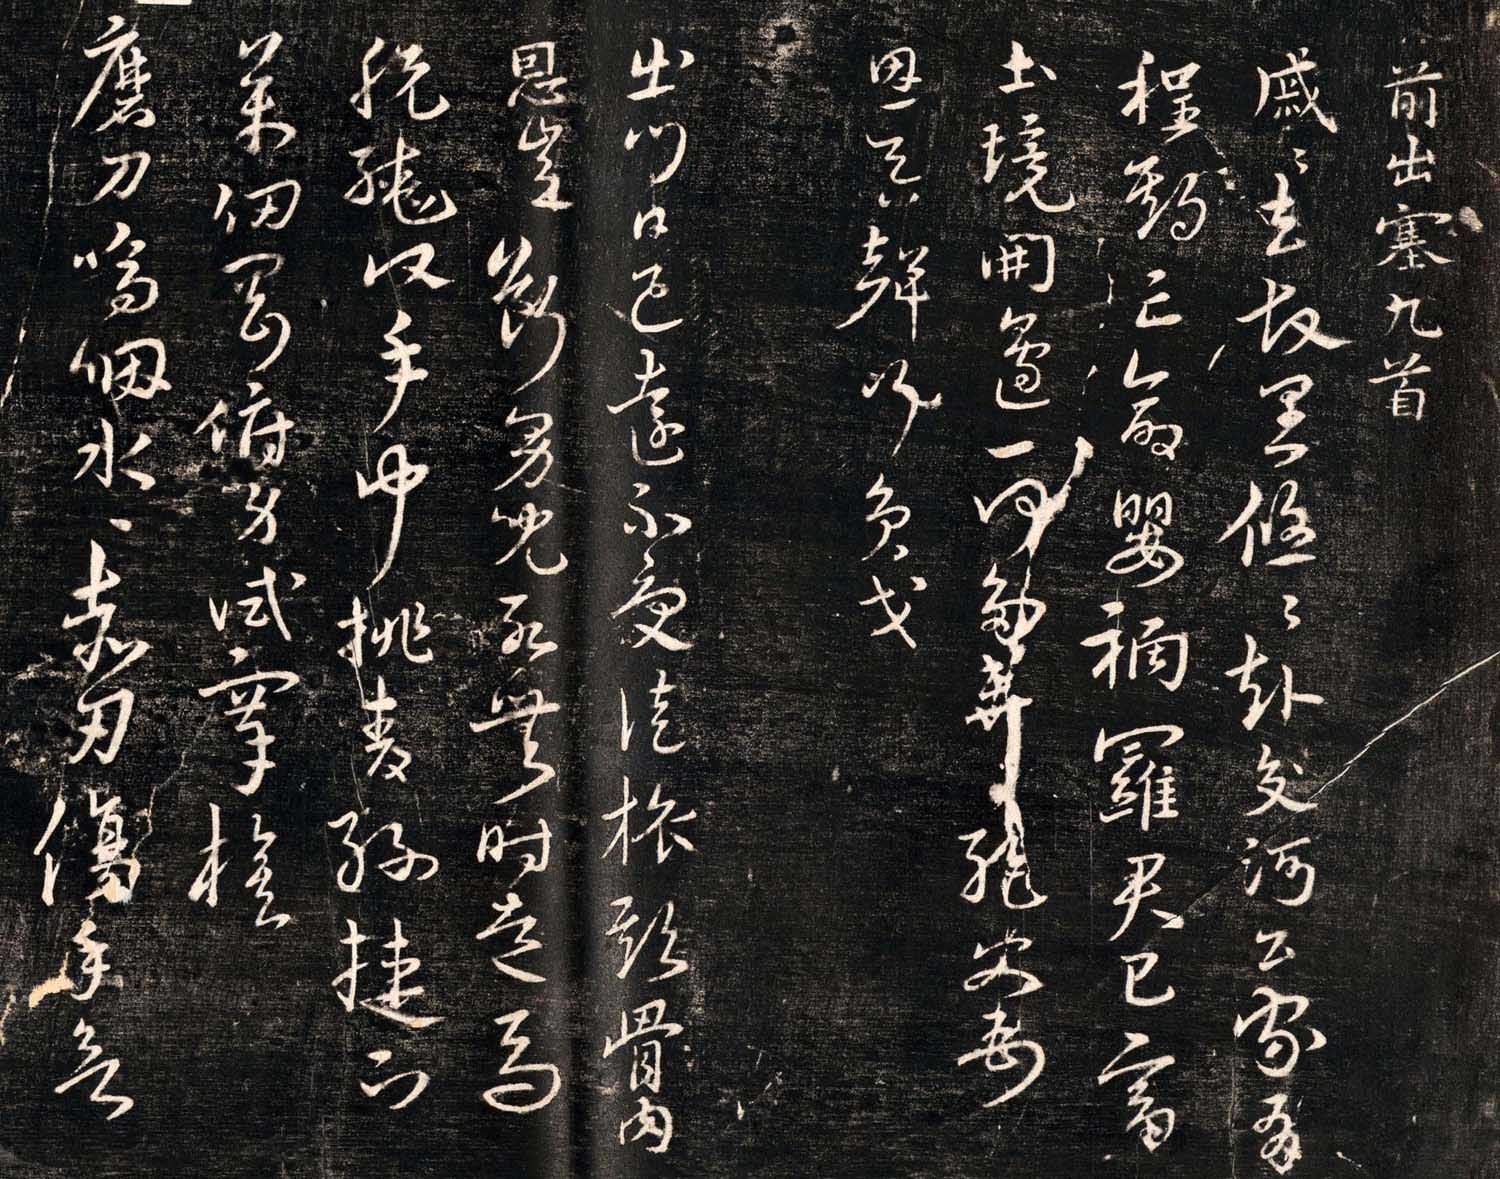 前出塞九首
戚〻去故里悠〻赴交河公家有
程期亡命嬰禍羅君已富
土境開邊一何多棄絕父母
恩吞聲行負戈
出門日已遠不受徒旅欺骨肉
恩豈斷男兒死無時走馬
脫轡頭手中挑青絲捷下
萬仞岡俯身試搴旗
磨刀嗚咽水〻赤刃傷手欲